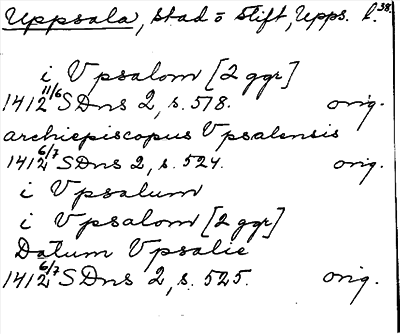 Uppsala, stad o Stift, Upps. l. 38.
i Vpsalom [2 ggr]
1412 11/6 SDns 2, s. 518. orig.
archiepiscopus Vpsalensis
1412 6/7 SDns 2, s. 524. orig.
i Vpsalum
i Vpsalom [2 ggr]
Datum Vpsalie
1412 6/7 SDns 2, s. 525. orig.